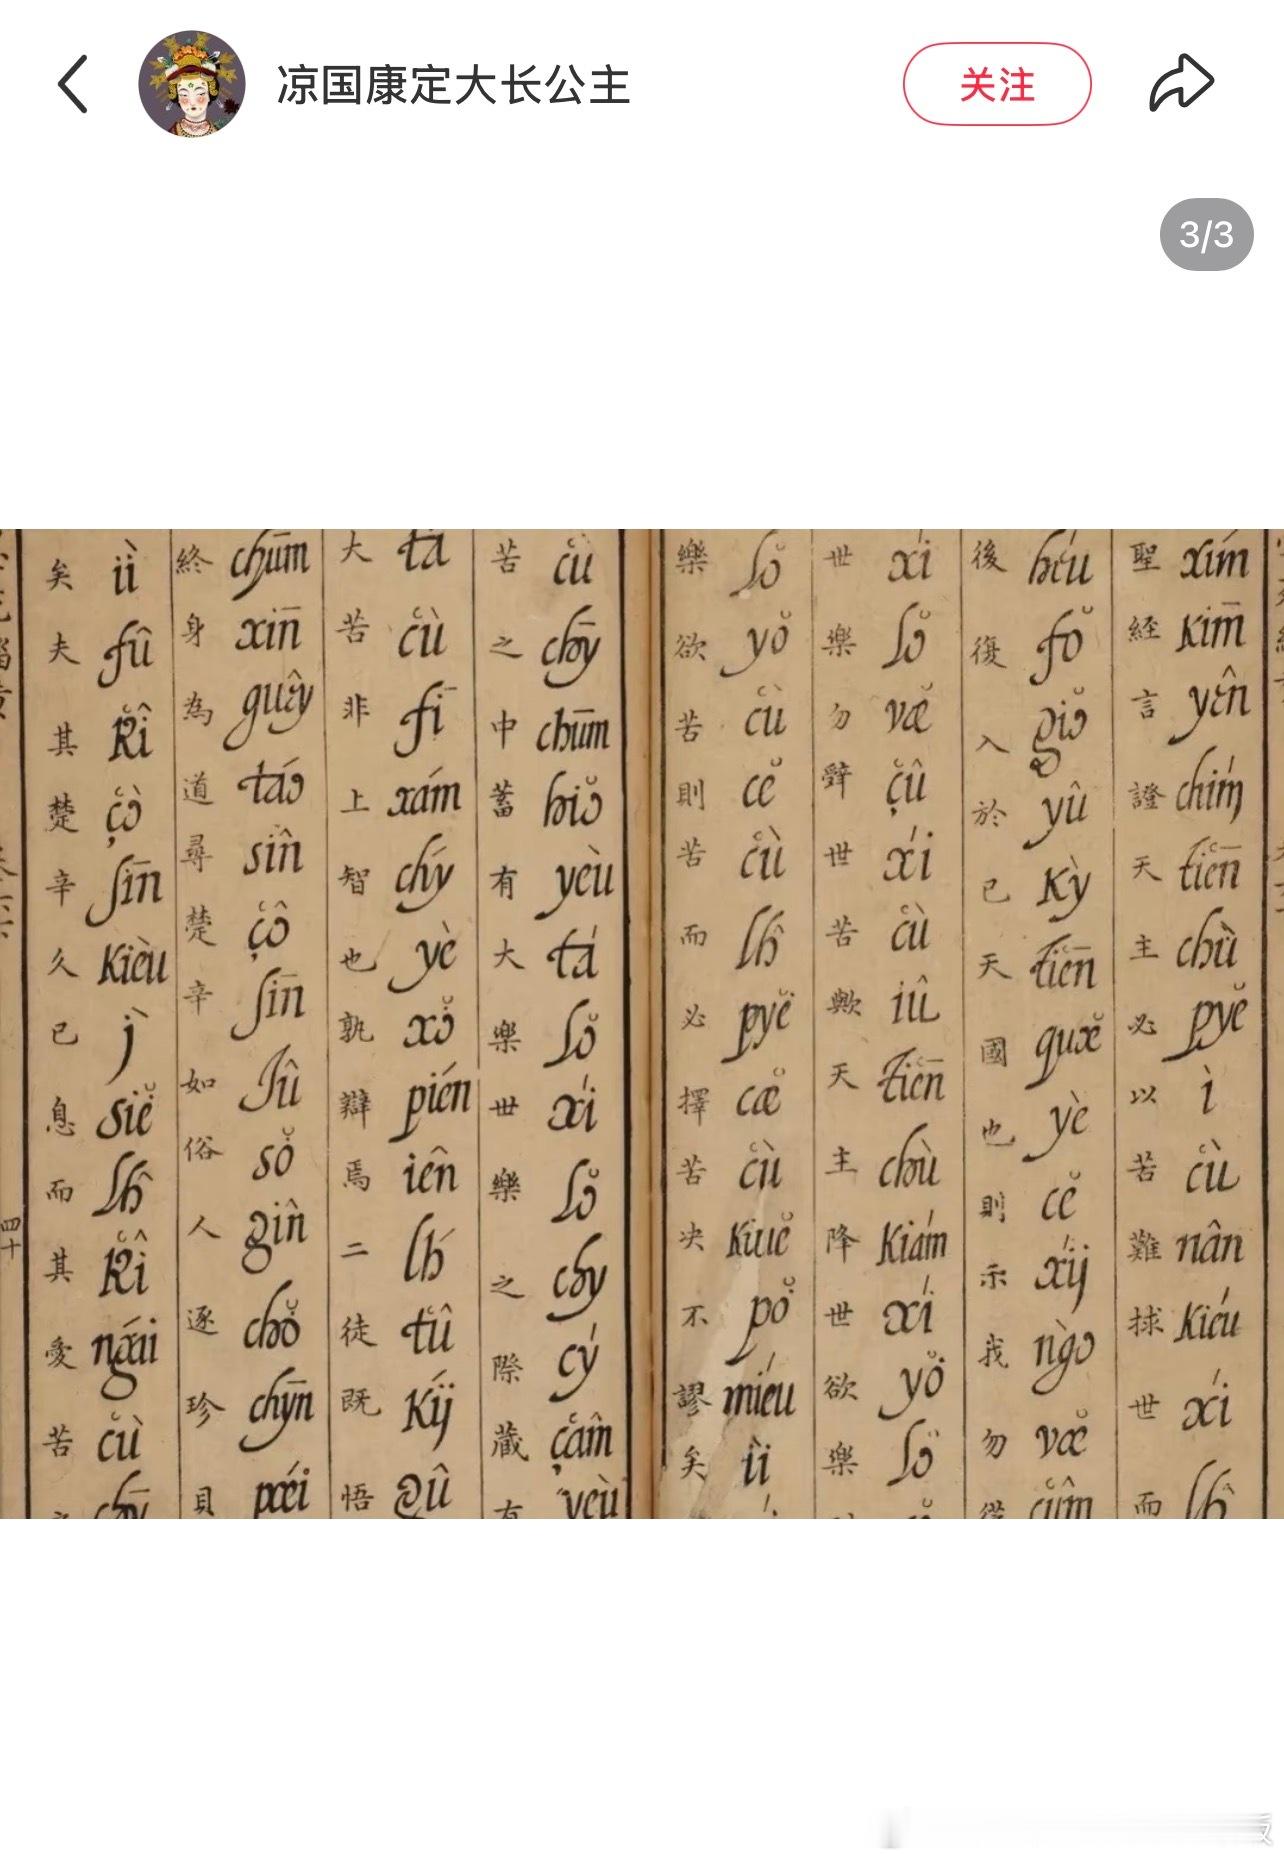 凉国康定大长公主
关注
3/3
聖 xím 経 kīm 言 yên 證 chím 天 tiēn 主 chù 必 pyĕ 以 ì 苦 cù 難 nân 捄 kiéu 世 xí 而 lh̑
後 héu 復 fŏ 入 giŏ 於 yû 已 kỳ 天 tiēn 國 quœ̆ 也 yè 則 cĕ 示 xíj 我 ngò 勿 vœ̆ 從 cûm
世 xí 樂 lŏ 勿 vœ̆ 辭 çû 世 xí 苦 cù 歟 iû 天 tiēn 主 chù 降 kiám 世 xí 欲 yŏ 樂 lŏ
樂 lŏ 欲 yŏ 苦 cù 則 cĕ 苦 cù 而 lh̑ 必 pyĕ 擇 cœ̆ 苦 cù 决 kiuĕ 不 pŏ 謬 miéu 矣 ìi
苦 cù 之 chȳ 中 chūm 蓄 hiŏ 有 yèu 大 tá 樂 lŏ 世 xí 樂 lŏ 之 chȳ 際 cý 藏 çâm 有 yèu
大 tá 苦 cù 非 fī 上 xám 智 chý 也 yè 孰 xŏ 辯 pién 焉 iên 二 lh́ 徒 tû 既 kíj 悟 gû
終 chūm 身 xīn 為 guêy 道 táo 尋 sîn 楚 çô 辛 sīn 如 jû 俗 sŏ 人 gîn 逐 chŏ 珍 chȳn 貝 pœ́i
矣 ìi 夫 fû 其 kî 楚 çò 辛 sīn 久 kièu 已 j̀ 息 siĕ 而 lh̑ 其 kî 愛 ngái 苦 cù 之 chȳ
四十